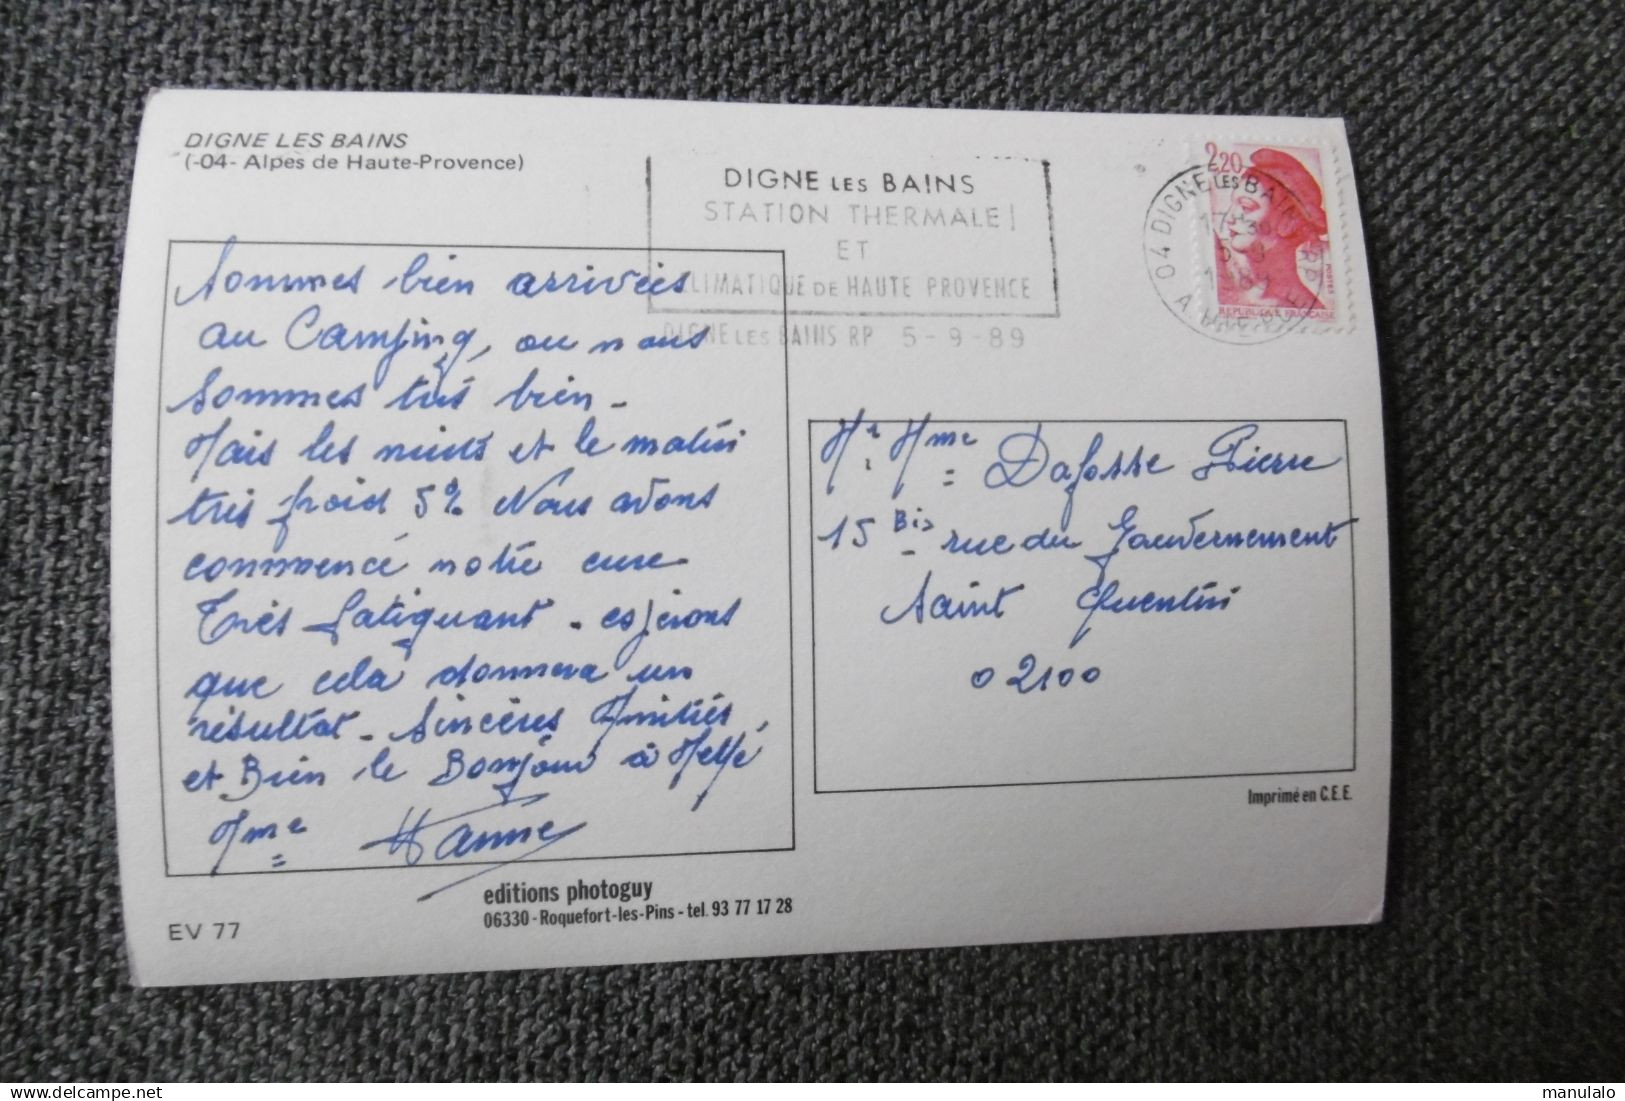 DIGNE LES BAINS
(-04- Alpes de Haute-Provence)
DIGNE LES BAINS
STATION THERMALE
ET
CLIMATIQUE DE HAUTE PROVENCE
DIGNE LES BAINS RP 5-9-89
04 DIGNE LES BAINS RP
17H30
5-9
1989
2,20
POSTES
REPUBLIQUE FRANÇAISE
Sommes bien arrivées
au Camping, ou nous
sommes très bien -
Mais les nuits et le matin
très froid 5% Nous avons
commencé notre cure
Très fatiguant - espérons
que cela donnera un
résultat - Sincères Amitiés,
et Bien le Bonjour à
Mme
Mr Mme Dafosse Pierre
15 Bis rue du Gouvernement
Saint Quentin
02100
Imprimé en C.E.E.
editions photoguy
06330 - Roquefort-les-Pins - tel. 93 77 17 28
EV 77
manulalo